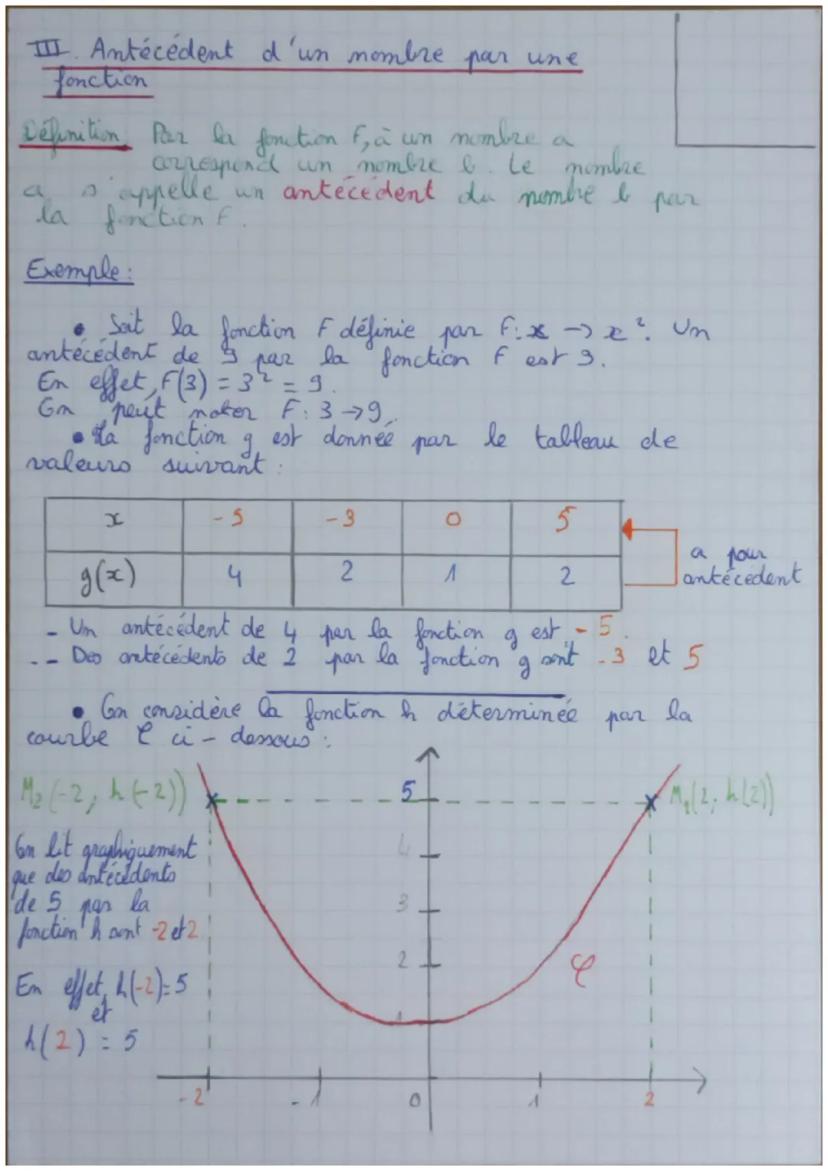 III. Antécédent d'un nombre par une
fonction
Définition Par la fonction F, à un nombre a
correspond un nombre b. Le nombre
a s'appelle un antécédent du nombre b par
la fonction F.
Exemple:
• Soit la fonction F définie par F: x → x². Un
antécédent de 9 par la fonction F est 3.
En effet, F(3) = 3² = 9.
On peut noter F: 3 → 9.
• La fonction g est donnée par le tableau de
valeurs suivant :
x -5 -3 0 5
g(x) 4 2 1 2
a pour
antécédent
- Un antécédent de 4 par la fonction g est - 5.
- Des antécédents de 2 par la fonction g sont -3 et 5
• On considère la fonction h déterminée par la
courbe C ci-dessous :
M2(-2; h(-2)) 5 M1(2; h(2))
On lit graphiquement
que des antécédents
de 5 par la
fonction h sont -2 et 2
En effet, h(-2)=5
et
h(2) = 5
4
3
2
C
1
-2 -1 0 1 2